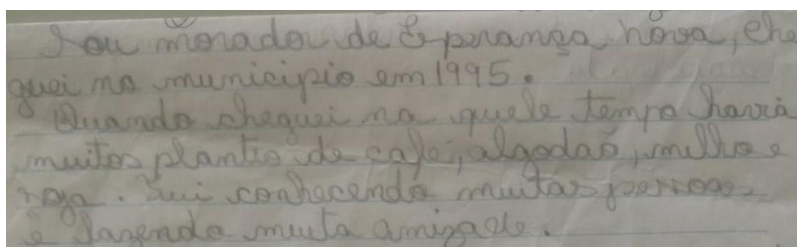 Sou morador de Esperança nova, che
guei no municipio em 1995.
Quando cheguei na quele tempo havia
muitos plantio de café, algodão, milho e
soja. Fui conhecendo muitas pessoas
e fazendo muita amizade.